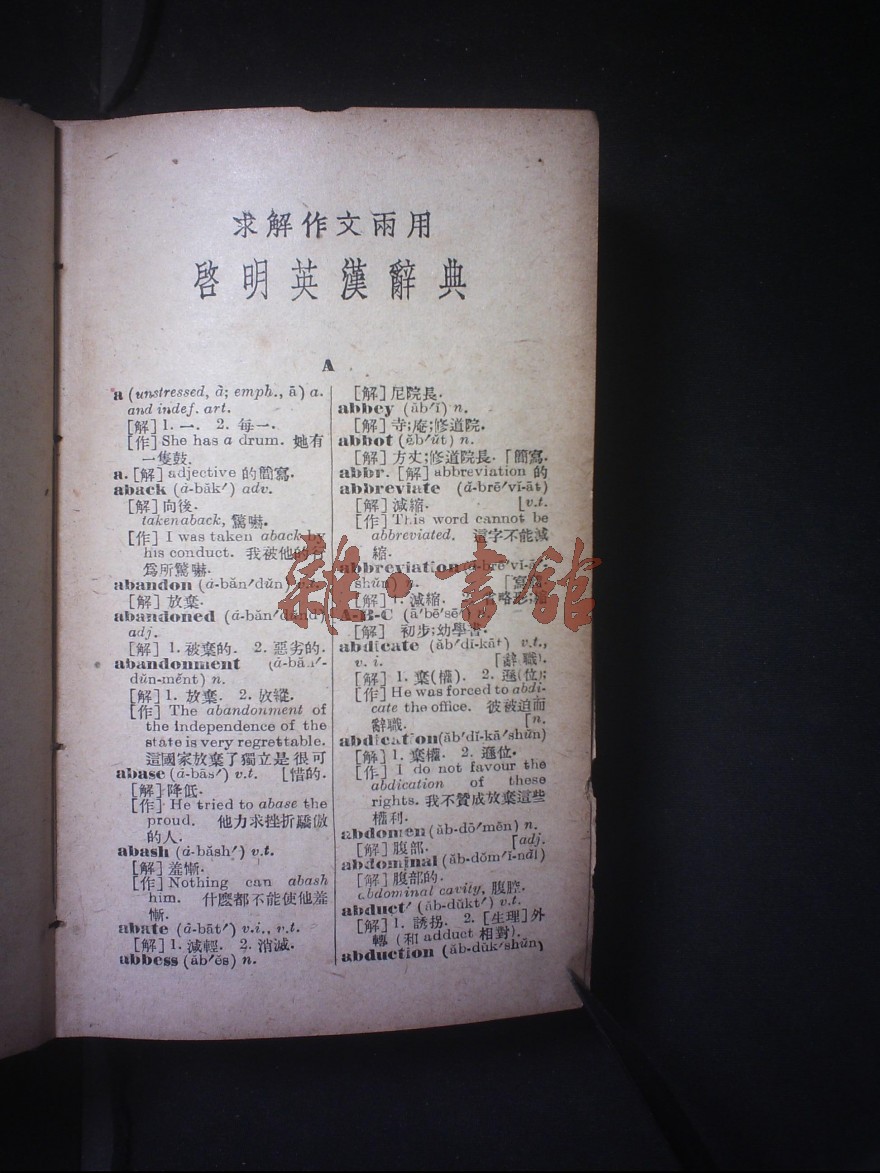 求解作文兩用
啓明英漢辭典
A
a (unstressed, ȧ; emph., ā) a.
and indef. art.
[解] 1. 一. 2. 每一.
[作] She has a drum. 她有
一隻鼓.
a. [解] adjective 的簡寫.
aback (ȧ-băk′) adv.
[解] 向後.
taken aback, 驚嚇.
[作] I was taken aback by
his conduct. 我被他的行
爲所驚嚇.
abandon (ȧ-băn′dŭn) v.t.
[解] 放棄.
abandoned (ȧ-băn′dŭnd)
adj.
[解] 1. 被棄的. 2. 惡劣的.
abandonment (ȧ-băn′-
dŭn-mĕnt) n.
[解] 1. 放棄. 2. 放縱.
[作] The abandonment of
the independence of the
state is very regrettable.
這國家放棄了獨立是很可
abase (ȧ-bās′) v.t. [惜的.
[解] 降低.
[作] He tried to abase the
proud. 他力求挫折驕傲
的人.
abash (ȧ-băsh′) v.t.
[解] 羞慚.
[作] Nothing can abash
him. 什麽都不能使他羞
慚.
abate (ȧ-bāt′) v.i., v.t.
[解] 1. 減輕. 2. 消滅.
abbess (ăb′ĕs) n.
[解] 尼院長.
abbey (ăb′ĭ) n.
[解] 寺;庵;修道院.
abbot (ăb′ŭt) n.
[解] 方丈;修道院長. 「簡寫.
abbr. [解] abbreviation 的
abbreviate (ă-brē′vĭ-āt)
[解] 減縮. [v.t.
[作] This word cannot be
abbreviated. 這字不能減
縮.
abbreviation (ă-brē′vĭ-ā′-
shŭn) n.
[解] 1. 減縮. 略形;縮
A-B-C (ā′bē′sē′) n.
[解] 初步;幼學書.
abdicate (ăb′dĭ-kāt) v.t.,
v. i. 「辭職).
[解] 1. 棄(權). 2. 遜(位);
[作] He was forced to abdi-
cate the office. 彼被迫而
辭職. [n.
abdication (ăb′dĭ-kā′shŭn)
[解] 1. 棄權. 2. 遜位.
[作] I do not favour the
abdication of these
rights. 我不贊成放棄這些
權利.
abdomen (ăb-dō′mĕn) n.
[解] 腹部. [adj.
abdominal (ăb-dŏm′ĭ-năl)
[解] 腹部的.
abdominal cavity, 腹腔.
abduct′ (ăb-dŭkt′) v.t.
[解] 1. 誘拐. 2. [生理] 外
轉 (和 adduct 相對).
abduction (ăb-dŭk′shŭn)
雜·書館